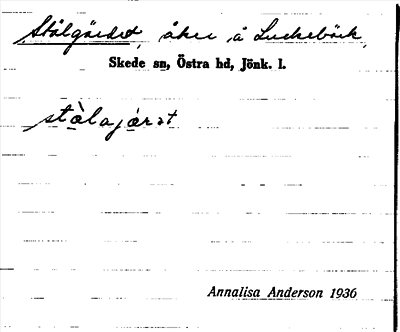 Stålgärdet, åker å Luckebäck,
Skede sn, Östra hd, Jönk. l.
Annalisa Anderson 1936